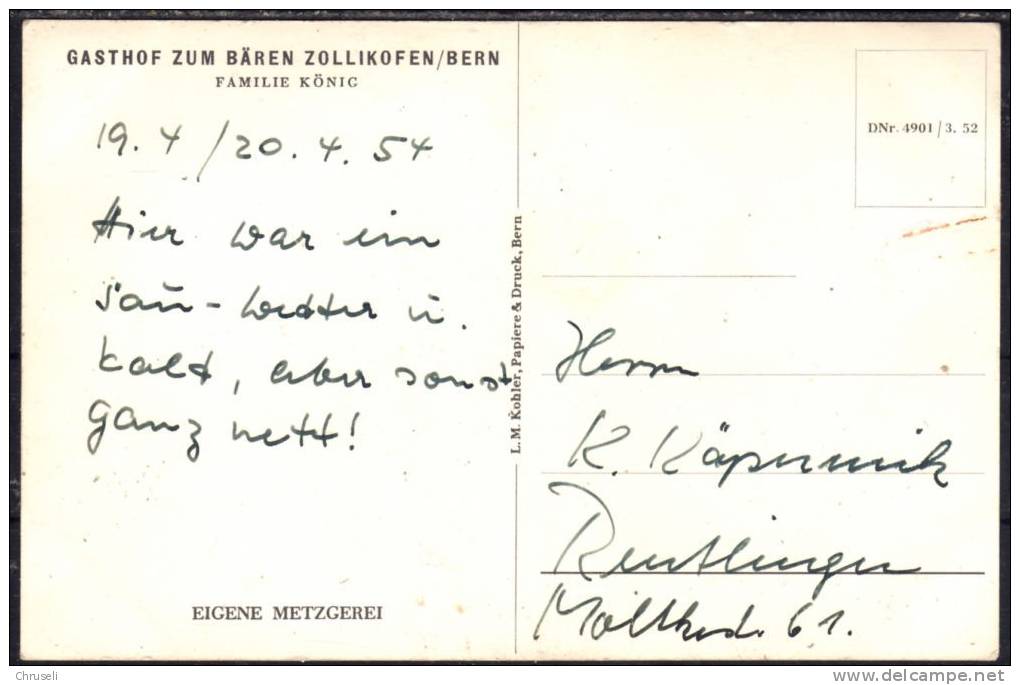 GASTHOF ZUM BÄREN ZOLLIKOFEN/BERN
FAMILIE KÖNIG
19.4/20.4.54
Hier war ein
Sau-wetter u.
kalt, aber sonst
ganz nett!
EIGENE METZGEREI
L. M. Kohler, Papiere & Druck, Bern
DNr. 4901/3. 52
Herrn
K. Käpernick
Reutlingen
61.
Chruseli
delcampe.net